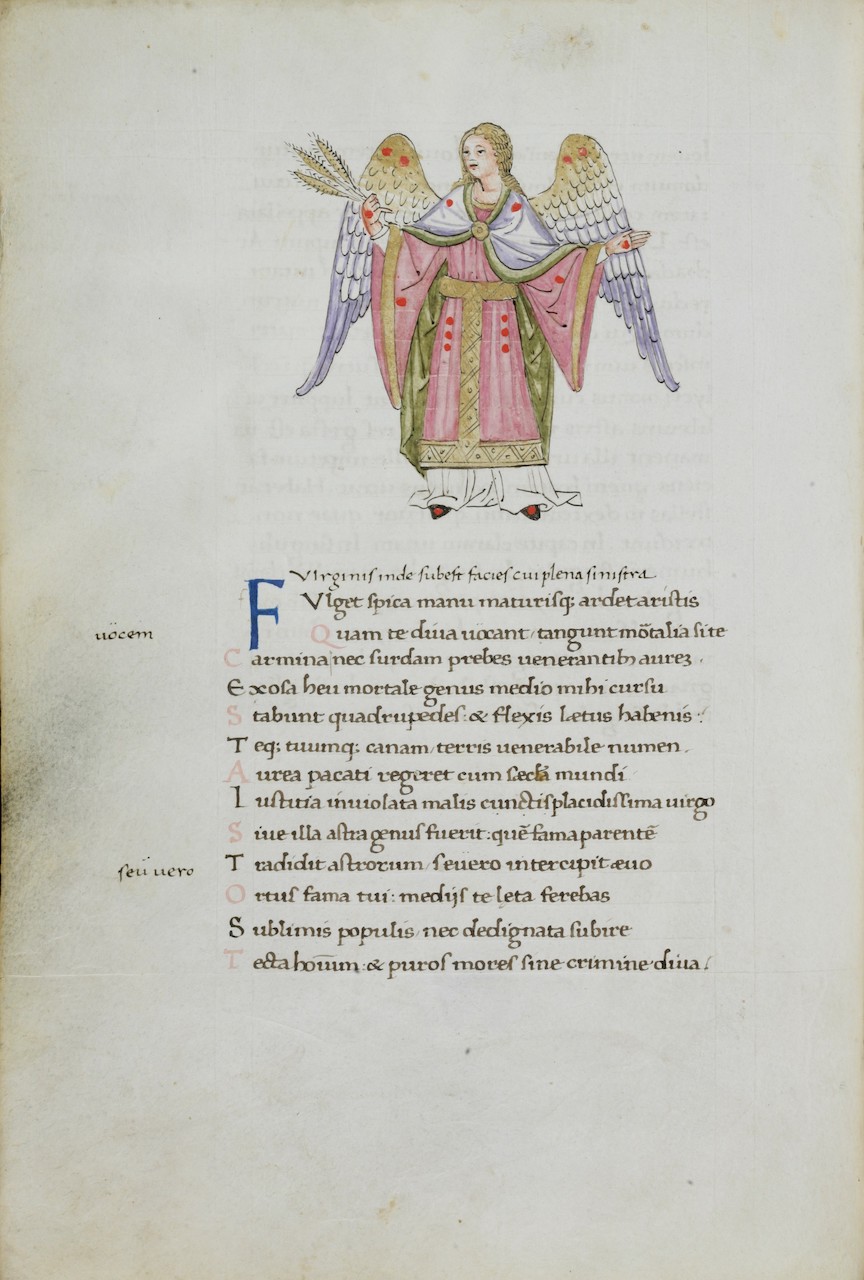 Virginis inde subest facies cui plena sinistra
FVlget spica manu maturisq; ardet aristis
Quam te diua uocant, tangunt mōtalia si te
uocem
Carmina nec surdam prebes uenerantib; aurez.
Exosa heu mortale genus medio mihi cursu
Stabunt quadrupedes: & flexis letus habenis
Teq; tuumq; canam, terris uenerabile numen.
Aurea pacati regeret cum secla mundi
Iustitia inuiolata malis cunctis placidissima uirgo
Siue illa astra genus fuerit: quē fama parentē
Tradidit astrorum, seuero intercipit æuo
seu uero
Ortus fama tui: medijs te leta ferebas
Sublimis populis, nec dedignata subire
Tecta houm: & puros mores sine crimine diua.